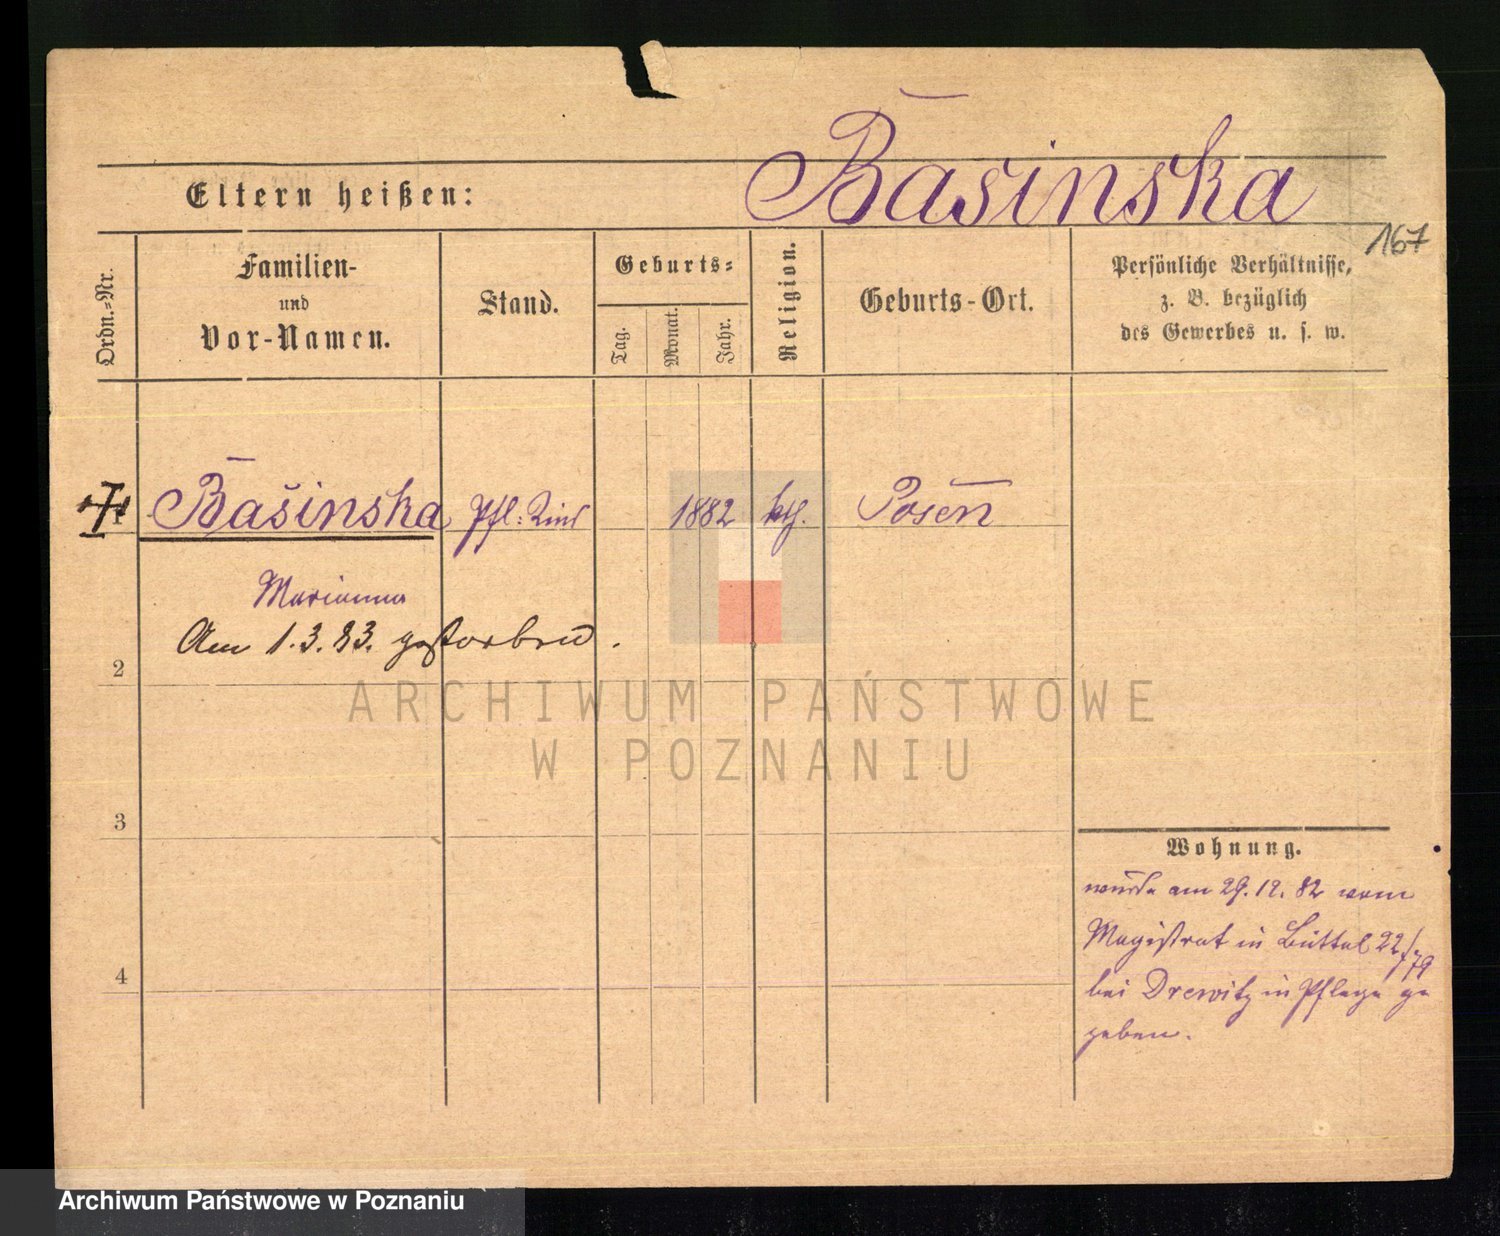 Bašinska
Eltern heißen:
167
Ordn.-Nr.
Familien-
und
Vor-Namen.
Stand.
Geburts-
Tag.
Monat.
Jahr.
Religion.
Geburts-Ort.
Persönliche Verhältnisse,
z. B. bezüglich
des Gewerbes u. s. w.
1 Bašinska Pfl: Kind 1882 kth. Posen
Marianna
Am 1.3.83. gestorben.
2
3
4
Wohnung.
wurde am 29.12.82 vom
Magistrat in Büttel 22/79
bei Drewitz in Pflege ge
geben.
ARCHIWUM PAŃSTWOWE
W POZNANIU
Archiwum Państwowe w Poznaniu